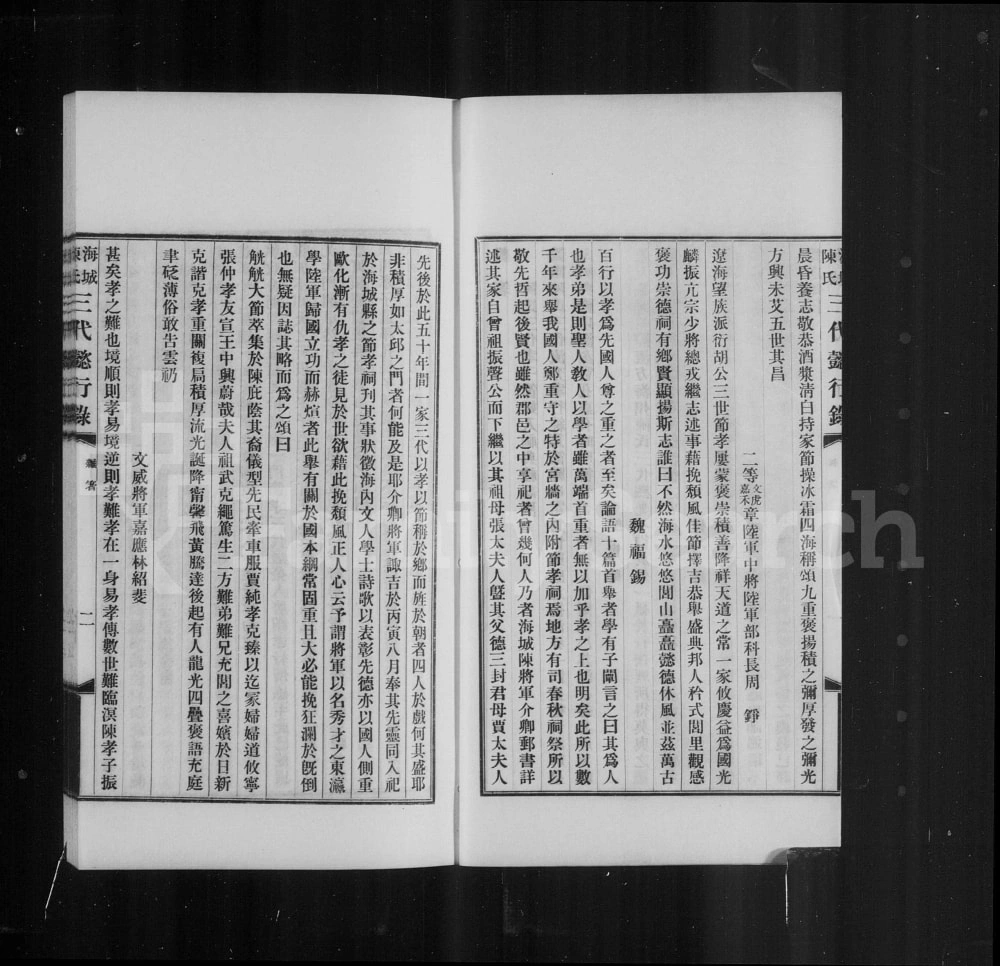 海城陳氏三代懿行錄
晨昏養志敬恭酒漿清白持家節操冰霜四海稱頌九重褒揚積之彌厚發之彌光
方興未艾五世其昌
二等文虎嘉禾章陸軍中將陸軍部科長周 錚
遼海望族派衍胡公三世節孝屢蒙褒崇積善降祥天道之常一家攸慶益爲國光
麟振亢宗少將總戎繼志述事藉挽頹風佳節擇吉恭舉盛典邦人矜式閭里觀感
褒功崇德祠有鄉賢顯揚斯志誰曰不然海水悠悠閭山矗矗懿德休風並茲萬古
魏福錫
百行以孝爲先國人尊之重之者至矣論語十篇首舉者學有子闡言之曰其爲人
也孝弟是則聖人敎人以學者雖萬端首重者無以加乎孝之上也明矣此所以數
千年來舉我國人鄭重守之特於宮牆之內附節孝祠焉地方有司春秋祠祭所以
敬先哲起後賢也雖然郡邑之中享祀者曾幾何人乃者海城陳將軍介卿郵書詳
述其家自曾祖振聲公而下繼以其祖母張太夫人曁其父德三封君母賈太夫人
先後於此五十年間一家三代以孝以節稱於鄉而旌於朝者四人於戲何其盛耶
非積厚如太邱之門者何能及是耶介卿將軍諏吉於丙寅八月奉其先靈同入祀
於海城縣之節孝祠刋其事狀徵海內文人學士詩歌以表彰先德亦以國人側重
歐化漸有仇孝之徒見於世欲藉此挽頹風正人心云予謂將軍以名秀才之東瀛
學陸軍歸國立功而赫煊者此舉有關於國本綱常固重且大必能挽狂瀾於旣倒
也無疑因誌其略而爲之頌曰
觥觥大節萃集於陳庇蔭其裔儀型先民牽車服賈純孝克臻以迄冢婦婦道攸寧
張仲孝友宣王中興蔚哉夫人祖武克繩篤生二方難弟難兄充閭之喜嬪於日新
克諧克孝重關複扃積厚流光誕降甯馨飛黃騰達後起有人龍光四疊褒語充庭
聿砭薄俗敢告雲礽
文威將軍嘉應林紹斐
甚矣孝之難也境順則孝易境逆則孝難孝在一身易孝傳數世難臨溟陳孝子振
海城陳氏三代懿行錄
二